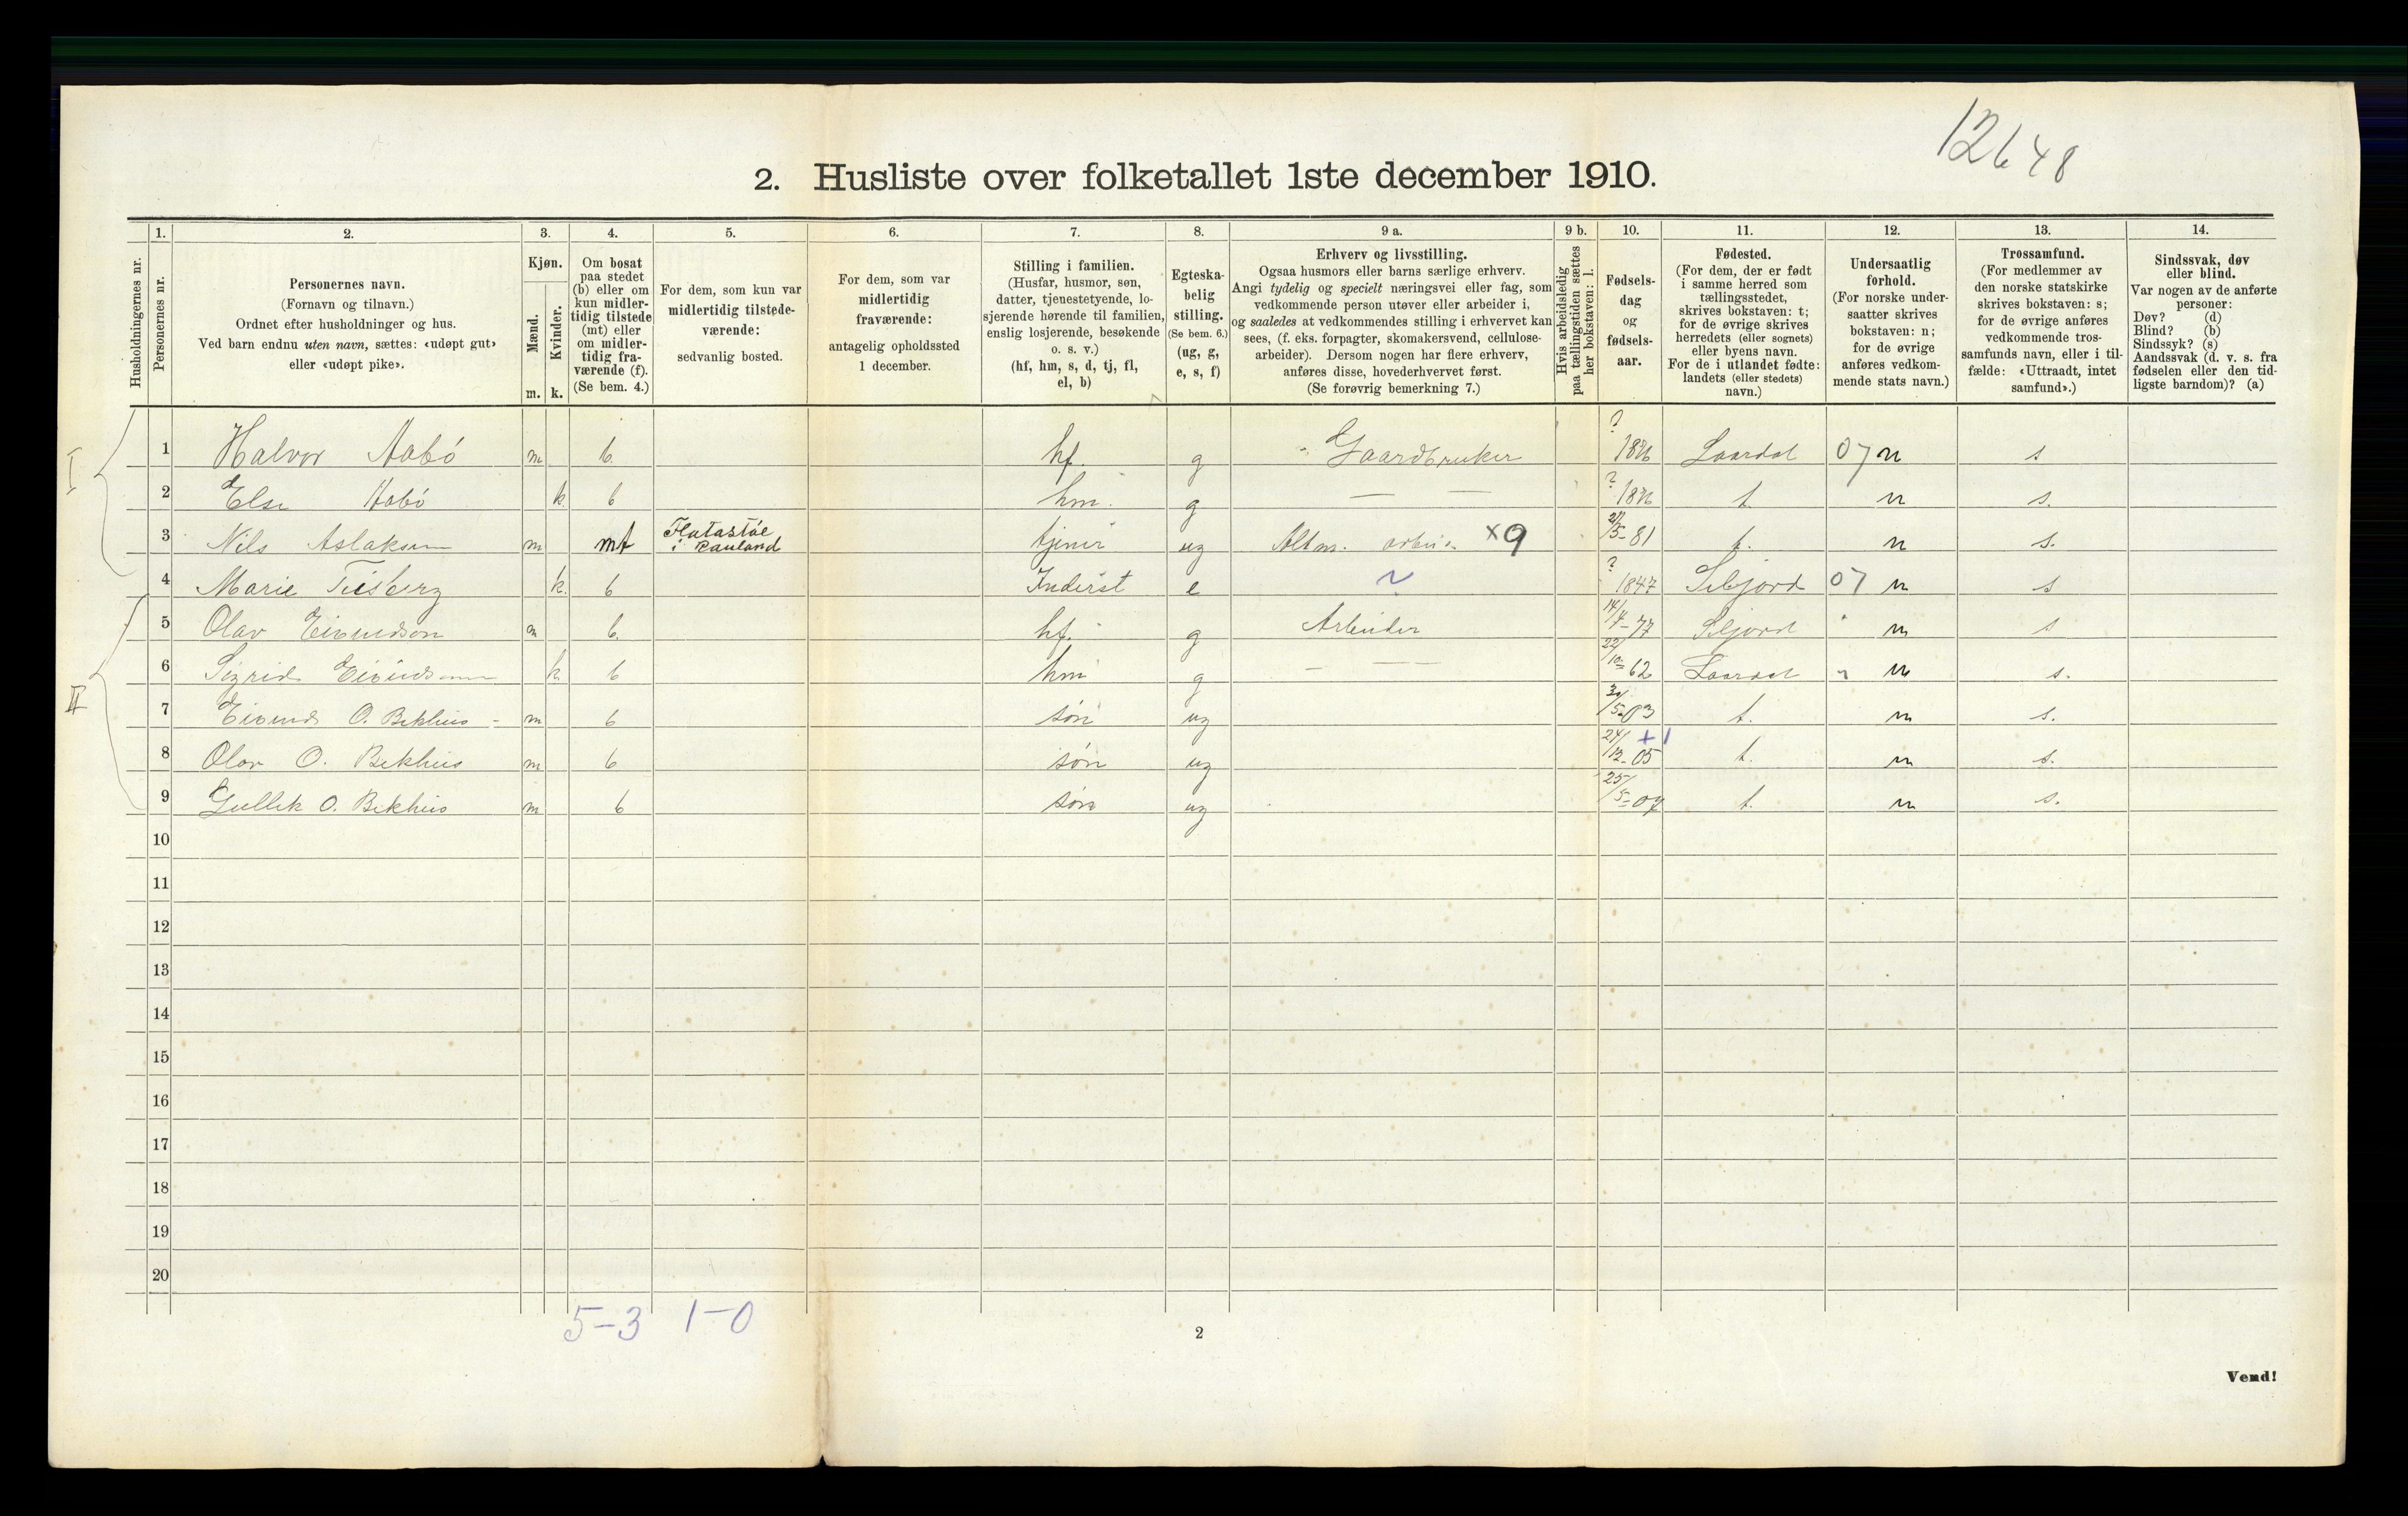 12648
2. Husliste over folketallet 1ste december 1910.
Husholdningernes nr.
1.
Personernes nr.
2.
Personernes navn.
(Fornavn og tilnavn.)
Ordnet efter husholdninger og hus.
Ved barn endnu uten navn, sættes: «udøpt gut»
eller «udøpt pike».
3.
Kjøn.
Mænd.
Kvinder.
m. k.
4.
Om bosat
paa stedet
(b) eller om
kun midler-
tidig tilstede
(mt) eller
om midler-
tidig fra-
værende (f).
(Se bem. 4.)
5.
For dem, som kun var
midlertidig tilstede-
værende:
sedvanlig bosted.
6.
For dem, som var
midlertidig
fraværende:
antagelig opholdssted
1 december.
7.
Stilling i familien.
(Husfar, husmor, søn,
datter, tjenestetyende, lo-
sjerende hørende til familien,
enslig losjerende, besøkende
o. s. v.)
(hf, hm, s, d, tj, fl,
el, b)
8.
Egteska-
belig
stilling.
(Se bem. 6.)
(ug, g,
e, s, f)
9 a.
Erhverv og livsstilling.
Ogsaa husmors eller barns særlige erhverv.
Angi tydelig og specielt næringsvei eller fag, som
vedkommende person utøver eller arbeider i,
og saaledes at vedkommendes stilling i erhvervet kan
sees, (f. eks. forpagter, skomakersvend, cellulose-
arbeider). Dersom nogen har flere erhverv,
anføres disse, hovederhvervet først.
(Se forøvrig bemerkning 7.)
9 b.
Hvis arbeidsledig
paa tællingstiden sættes
her bokstaven: l.
10.
Fødsels-
dag
og
fødsels-
aar.
11.
Fødested.
(For dem, der er født
i samme herred som
tællingsstedet,
skrives bokstaven: t;
for de øvrige skrives
herredets (eller sognets)
eller byens navn.
For de i utlandet fødte:
landets (eller stedets)
navn.)
12.
Undersaatlig
forhold.
(For norske under-
saatter skrives
bokstaven: n;
for de øvrige
anføres vedkom-
mende stats navn.)
13.
Trossamfund.
(For medlemmer av
den norske statskirke
skrives bokstaven: s;
for de øvrige anføres
vedkommende tros-
samfunds navn, eller i til-
fælde: «Uttraadt, intet
samfund».)
14.
Sindssvak, døv
eller blind.
Var nogen av de anførte
personer:
Døv? (d)
Blind? (b)
Sindssyk? (s)
Aandssvak (d. v. s. fra
fødselen eller den tid-
ligste barndom)? (a)
I
1 Halvor Aabö m b hf. g Gaardbruker ? Laardal 07 n s
2 Else Aabö k. b hm. g — — ? t. n s.
3 Nils Aslaksen m mt Flatastöe i Rauland tjener ug ×9 21/5-81 t. n s.
4 Marie k. b Inderst e ? 1847 07 n s
II
5 Olav Eivindson m b. hf. g Arbeider 14/4-77 Seljord " n s
6 Sigrid k. b hm g — — — 22/10-62 Laardal n s.
7 Eivind O. Bekhus - m b sön ug 30/5-03 t. n s.
8 Olav O. Bekhus m b sön ug 24/12-05 +1 t. n s.
9 Gullik O. Bekhus m b sön ug 25/5-07 t. n s.
10
11
12
13
14
15
16
17
18
19
20
5-3 1-0
2
Vend!